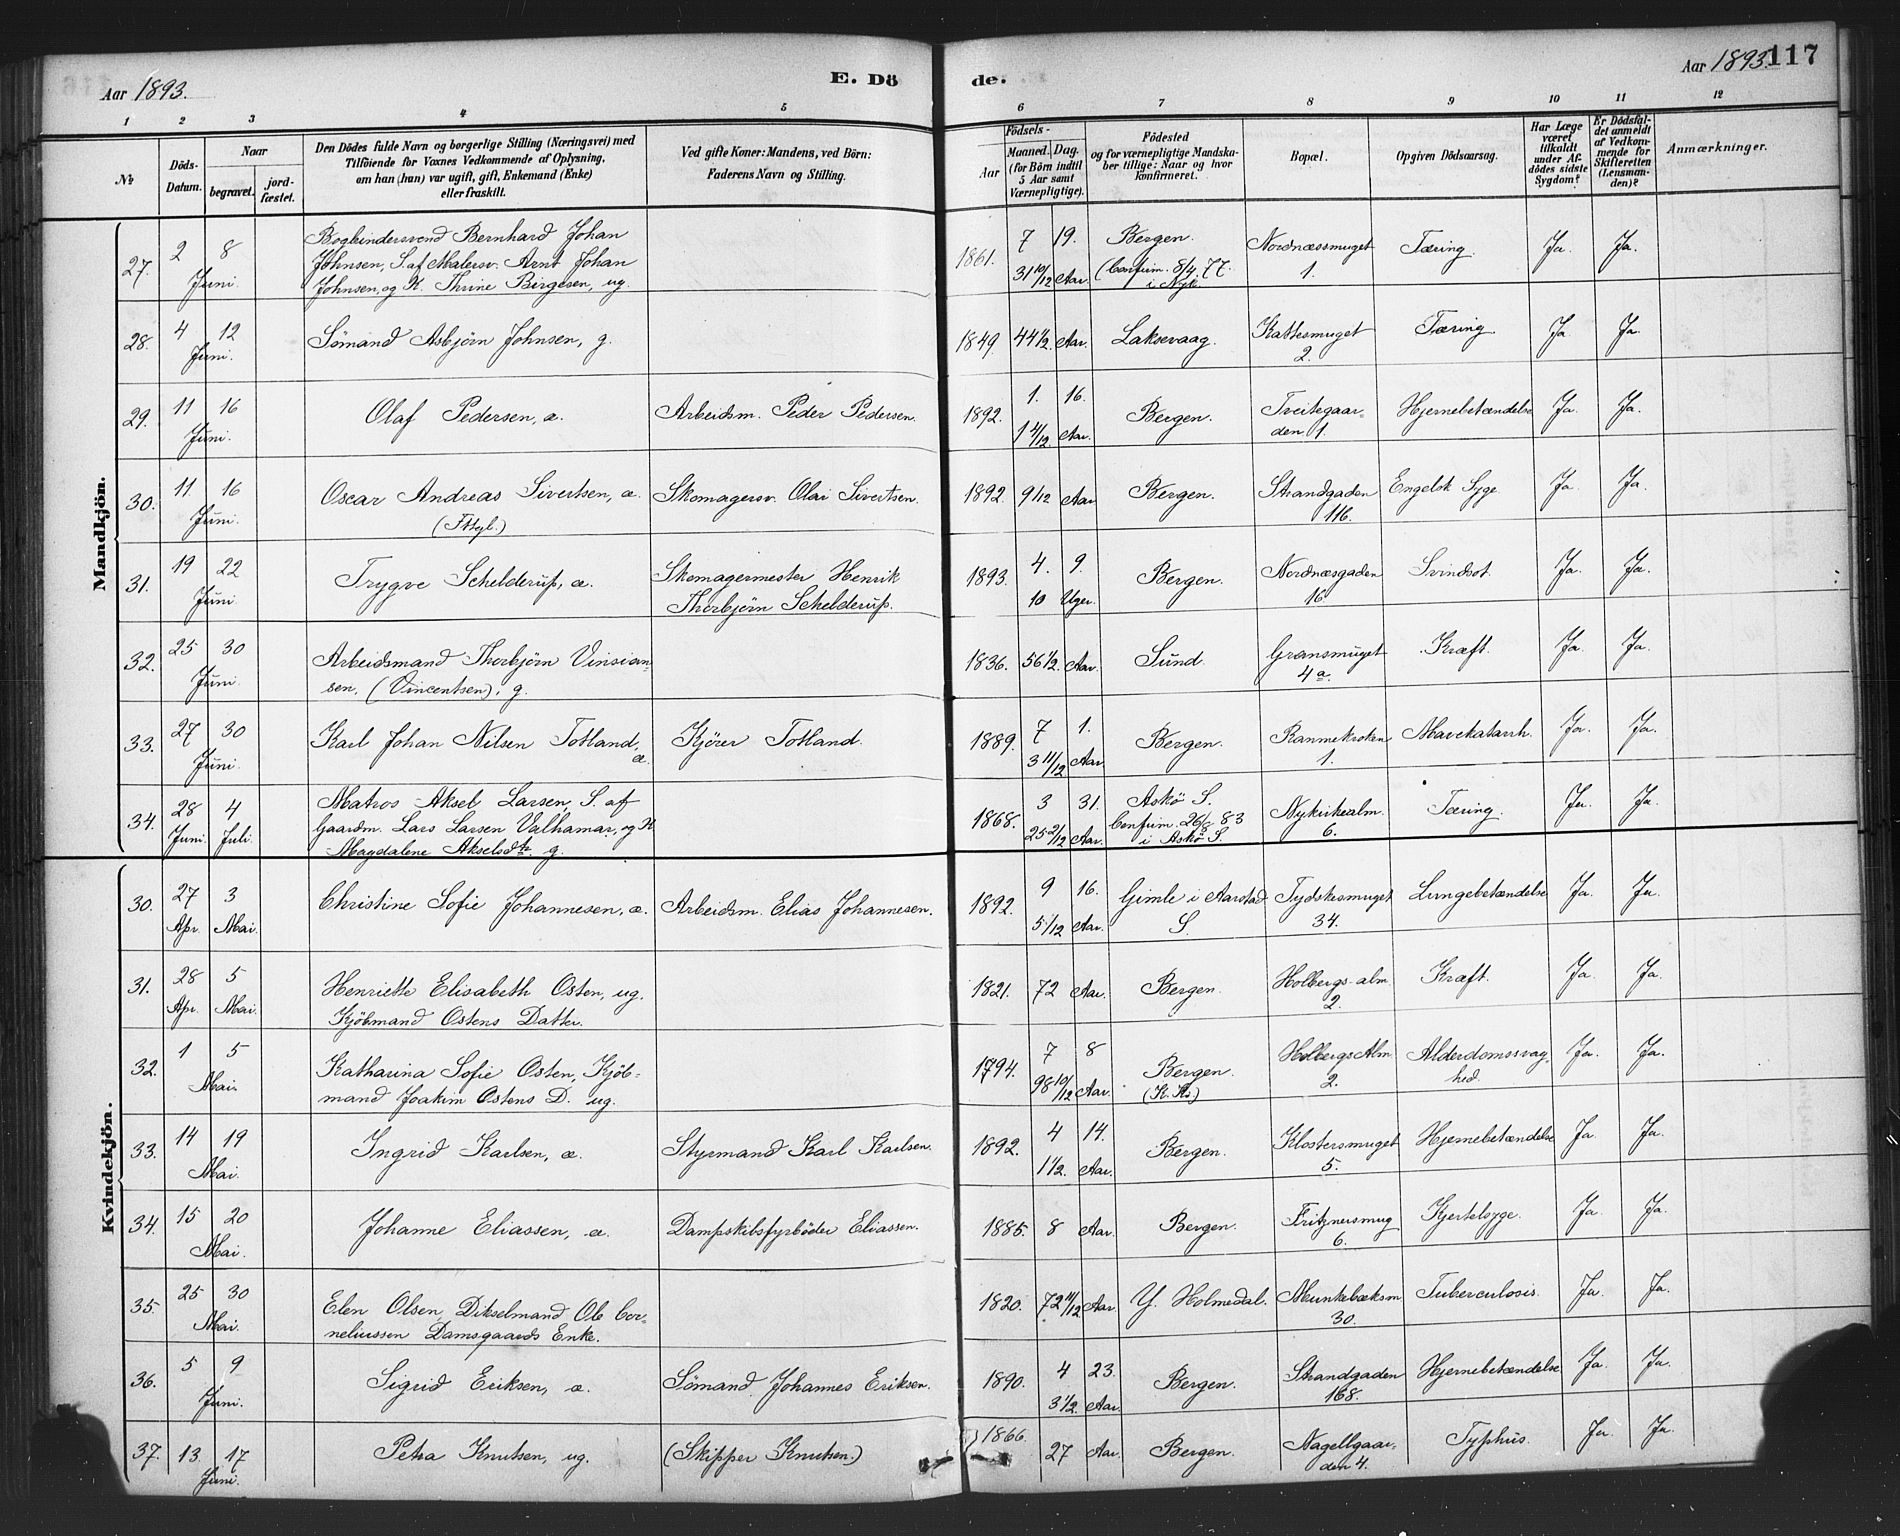 Aar 1893.
E. Dö de.
Aar 1893. 117
1 2 3 4 5 6 7 8 9 10 11 12
№
Döds-Datum.
Naar
begravet.
jord-fæstet.
Den Dödes fulde Navn og borgerlige Stilling (Næringsvei) med
Tilföiende for Voxnes Vedkommende af Oplysning,
om han (hun) var ugift, gift, Enkemand (Enke)
eller fraskilt.
Ved gifte Koner: Mandens, ved Börn:
Faderens Navn og Stilling.
Födsels-
Aar
Maaned. Dag.
(for Börn indtil
5 Aar samt
Værnepligtige).
Födested
og for værnepligtige Mandska-
ber tillige: Naar og hvor
konfirmeret.
Bopæl.
Opgiven Dödsaarsag.
Har Læge
været
tilkaldt
under Af-
dödes sidste
Sygdom?
Er Dödsfal-
det anmeldt
af Vedkom-
mende for
Skifteretten
(Lensman-
den)?
Anmærkninger.
Mandkjön.
27. 2 8 Juni. Bogbindersvend Bernhard Johan
Johnsen, S. af Malersv. Arnt Johan
Johnsen, og K. Thrine Birgesen, ug.
1861. 7 19. 31 10/12 Aar. Bergen. (Confirm. 8/4 77. i Nyk. Nordnæssmuget 1. Tæring. Ja. Ja.
28. 4 12 Juni. Sömand Asbjörn Johnsen, g. 1849. 44 1/2. Aar. Laksevaag. Kattesmuget 2. Tæring. Ja. Ja.
29. 11 16 Juni. Olaf Pedersen, æ. Arbeidsm. Peder Pedersen. 1892. 1. 16. 1 4/12. Aar. Bergen. Treitegaar-
den 1. Hjernebetændelse Ja. Ja.
30. 11 16 Juni. Oscar Andreas Sivertsen, æ. Skomagersv. Olai Sivertsen. 1892. 9/12 Aar Bergen. Strandgaden 116. Engelsk Syge. Ja. Ja.
31. 19 22 Juni. Trygve Schelderup, æ. Skomagermester Henrik
Thorbjörn Schelderup. 1893. 4. 9. 10 Uger. Bergen. Nordnæsgaden 16. Svindsot. Ja. Ja.
32. 25 30 Juni. Arbeidsmand Thorbjörn Vinsian-
sen, (Vincentsen), g. 1836. 56 1/2. Aar. Sund. Gransmuget 4a. Kræft. Ja. Ja.
33. 27 30 Juni. Karl Johan Nilsen Totland, æ. Kjörer Totland. 1889. 7 1. 3 11/12 Aar. Bergen. Ranmekroken 1. Mavekatarrh. Ja. Ja.
34. 28 Juni. 4 Juli. Matros Aksel Larsen, S. af
Gaardm. Lars Larsen Valhamar, og K
Magdalene Akselsdtr. g. 1868. 3 31. 25 2/12 Aar. Askö S. Confirm. 26/8 83 i Askö S. Nykirkealm. 6. Tæring. Ja. Ja.
Kvindekjön.
30. 27 Apr. 3 Mai. Christine Sofie Johannesen, æ. Arbeidsm. Elias Johannesen. 1892. 9 16. 5/12 Aar. Gimle i Aarstad S. Tydskesmuget 34. Lungebetændelse Ja. Ja.
31. 28 Apr. 5 Mai. Henriette Elisabeth Osten, ug.
Kjöbmand Ostens Datter. 1821. 72 Aar. Bergen. Holbergs alm. 2. Kræft. Ja. Ja.
32. 1 5 Mai. Katharina Sofie Osten, Kjöb-
mand Joakim Ostens D. ug. 1794. 7 8 98 10/12 Aar. Bergen. (K. K.) Holbergs Alm. 2. Alderdomssvag-
hed. Ja. Ja.
33. 14 19 Mai. Ingrid Karlsen, æ. Styrmand Karl Karlsen. 1892. 4 14. 1 1/2. Aar. Bergen. Klostersmuget 5. Hjernebetændelse Ja. Ja.
34. 15 20 Mai. Johanne Eliassen, æ. Dampskibsfyrböder Eliassen. 1885. 8 Aar. Bergen. Fritznersmug 6. Kjertelsyge. Ja. Ja.
35. 25 30 Mai. Elen Olsen, Dikselmand Ole Cor-
neliussen Damsgaards Enke. 1820. 72 11/12 Aar. Y. Holmedal. Munkebæksm 30. Tuberculosis. Ja. Ja.
36. 5 9 Juni. Sigrid Eriksen, æ. Sömand Johannes Eriksen. 1890. 4 23. 3 1/2. Aar. Bergen. Strandgaden 168. Hjernebetændelse Ja. Ja.
37. 13 17 Juni. Petra Knutsen, ug. (Skipper Knutsen.) 1866. 27 Aar. Bergen. Nagellgaar-
den 4. Typhus. Ja. Ja.